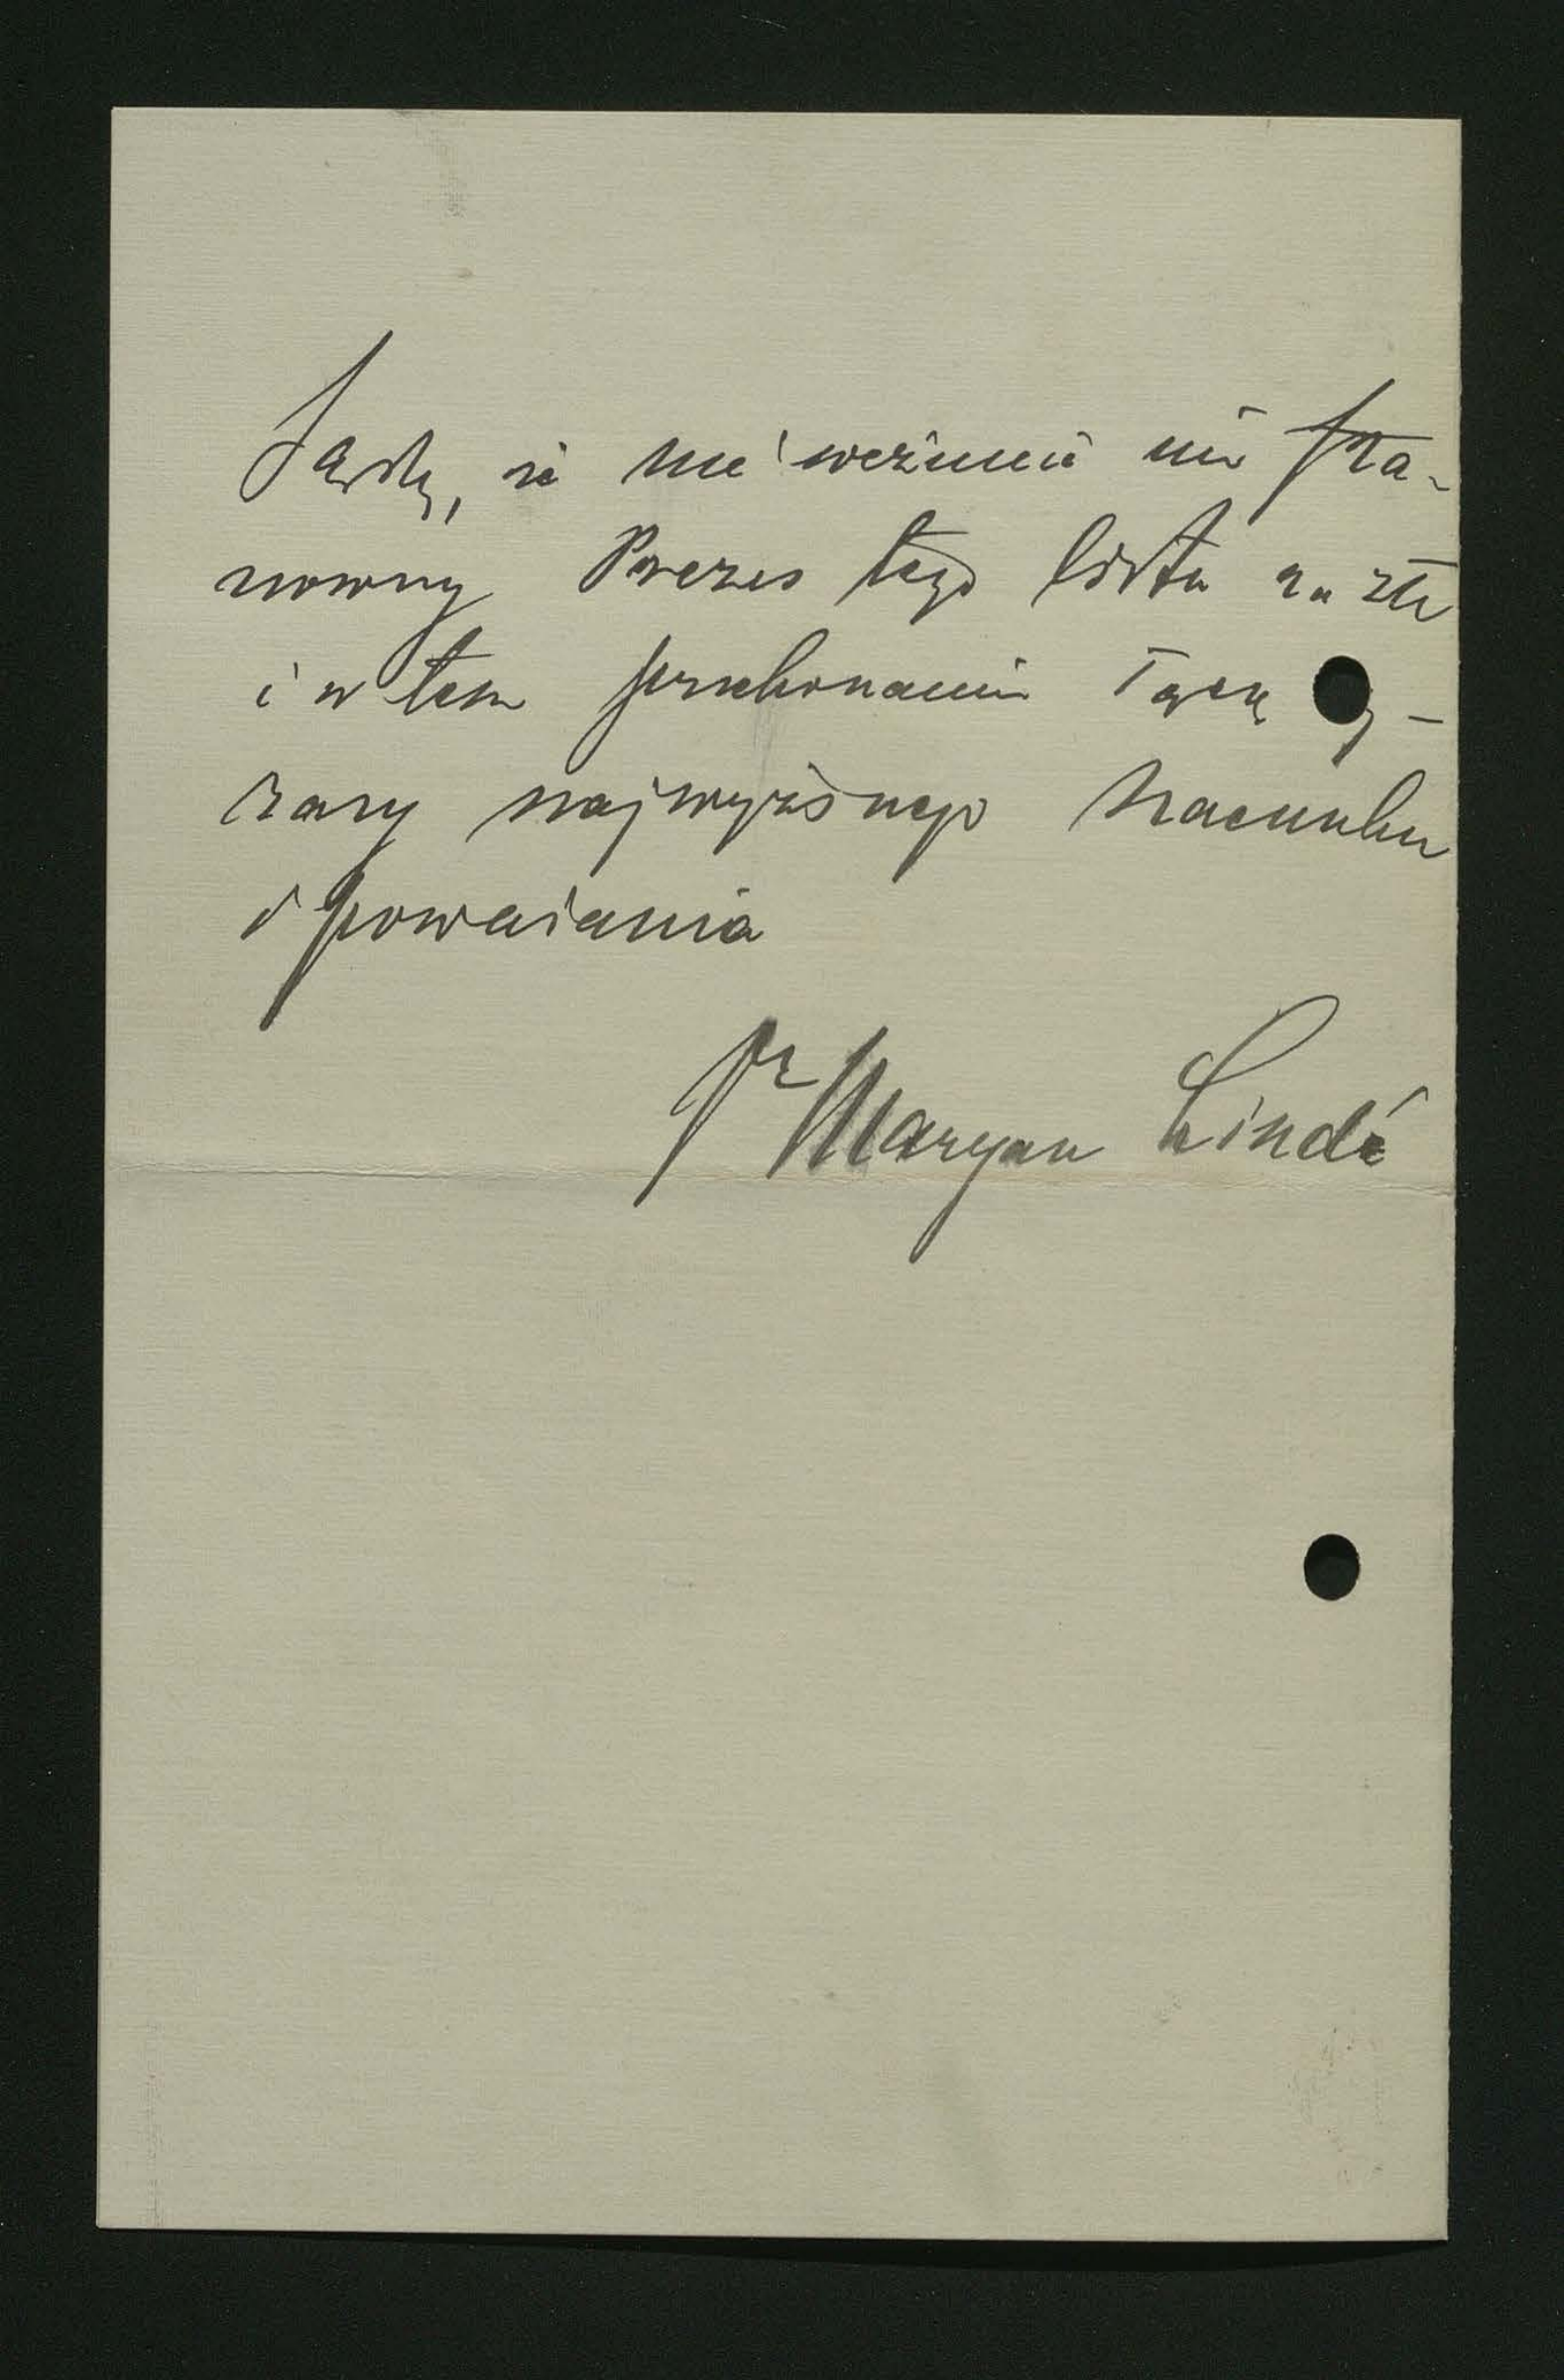 Sądzę, że nie weźmie mi Sza-
nowny Prezes tego listu za złe
i w tem przekonaniu łączę wy-
razy najwyższego szacunku
i poważania
Dr Maryan Lindé